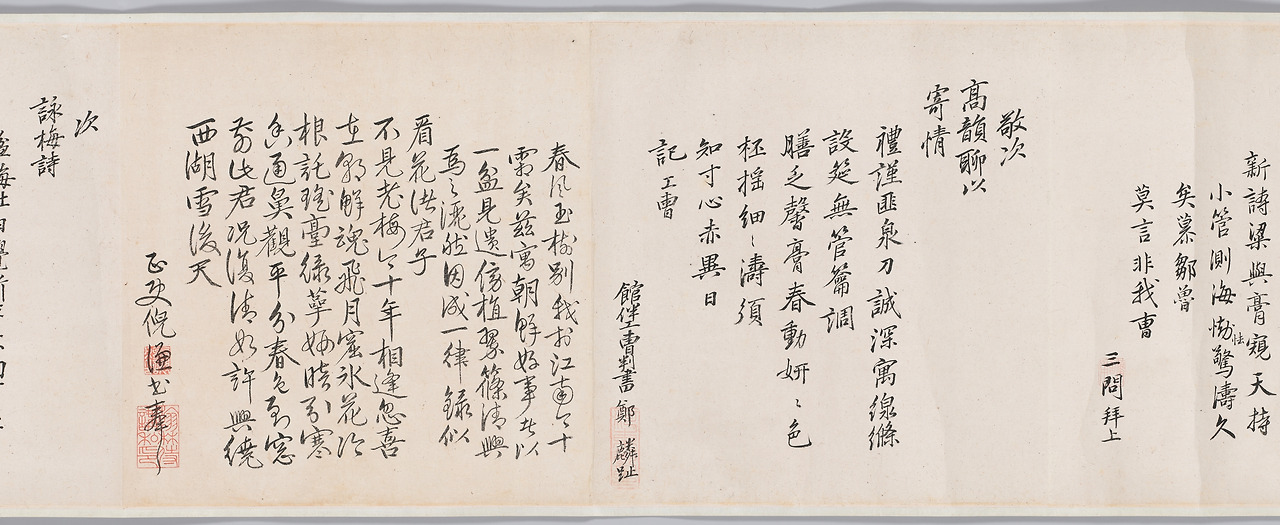 新詩梁與膏窺天持
小管測海怯驚濤久
矣慕鄒曾
莫言非我曺
三問拜上
敬次
高韻聊以
寄情
禮謹匪泉刀誠深寓線絛
設筵無管籥調
膳乏馨膏春動妍〻色
杯搖細〻濤須
知寸心赤異日
記工曺
館伴工曺判書鄭麟趾
春風玉樹別我於江南今十
霜矣茲寓朝鮮好事者以
一盆見遺傍植翠篠清興
為之灑然因成一律録似
看花諸君子
不見老梅今十年相逢忽喜
在朝鮮魂飛月窟氷花冷
根託瑤臺綠萼妍晴引寒
香通鼻觀平分春色到窓
前此君況復清如許興繞
西湖雪後天
正使倪謙書奉
次
詠梅詩